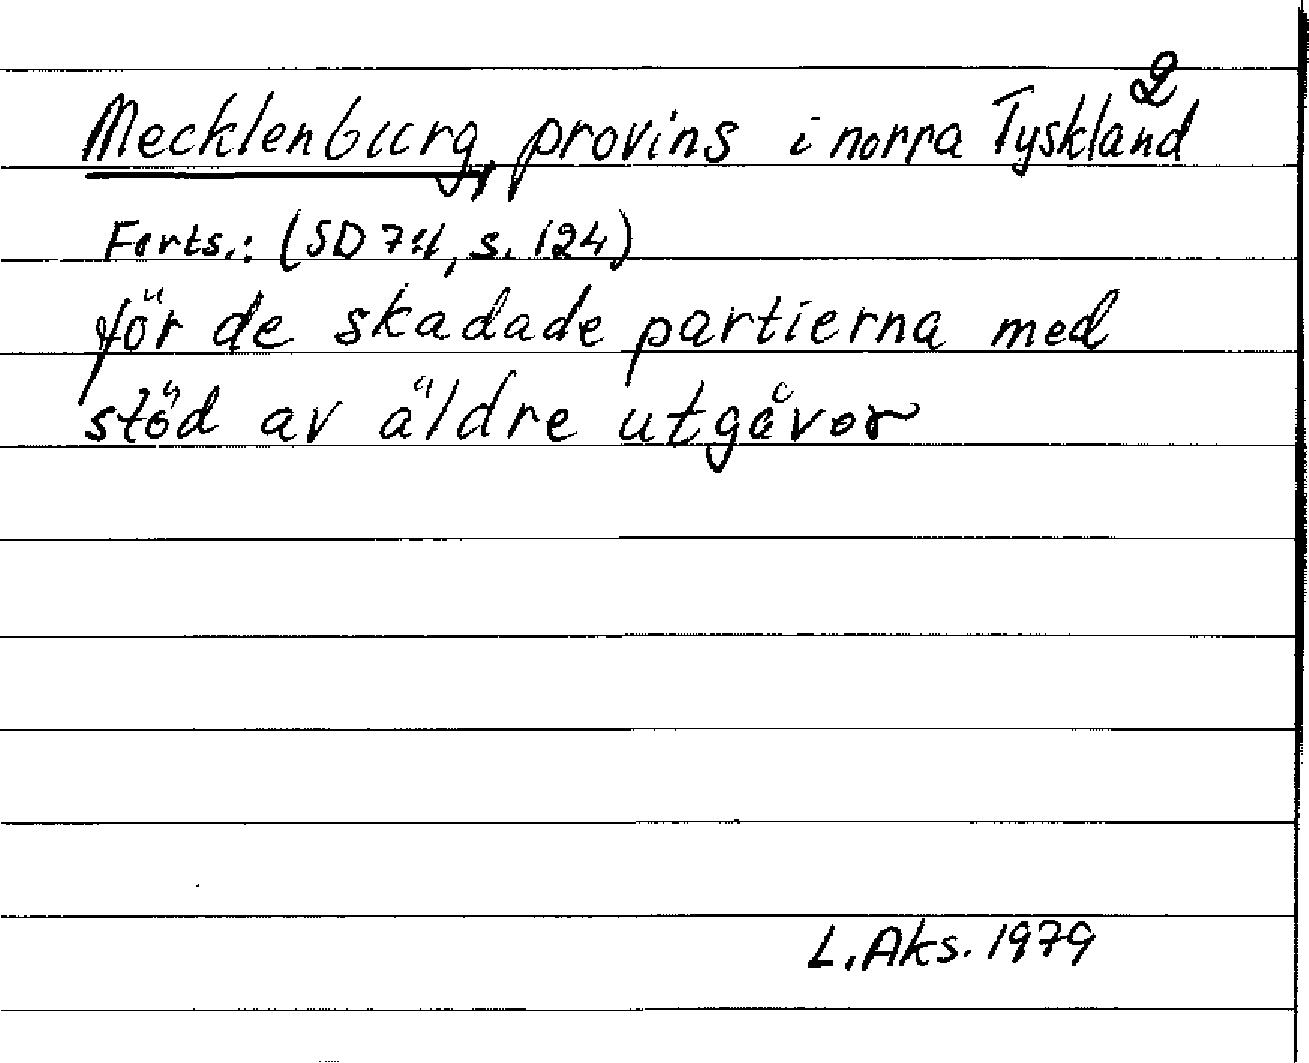 2
Mecklenburg, provins i norra Tyskland
Forts.: (SD 7:1, s. 124)
för de skadade partierna med
stöd av äldre utgåvor
L. Aks. 1979